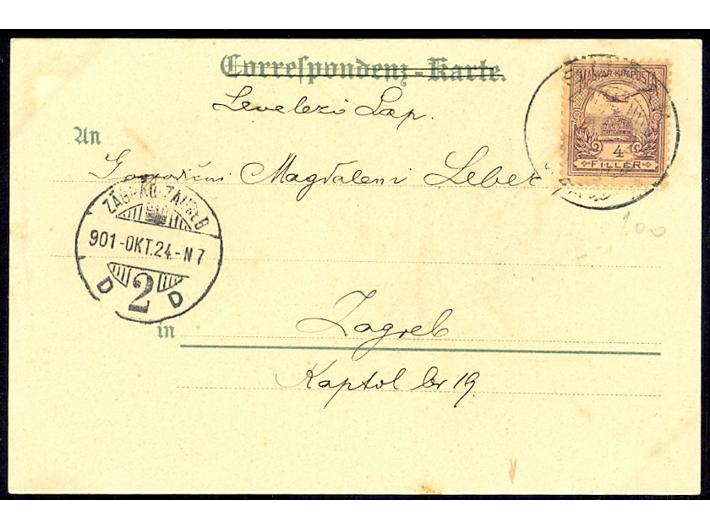 Correspondenz-Karte.
Levelező Lap.
MAGYAR KIR. POSTA
4
FILLÉR
An
Magdaleni Lebez
100
ZÁGRÁB ZAGREB
901-OKT.24-N7
D 2 D
in
Zagreb
Kaptol br 19.